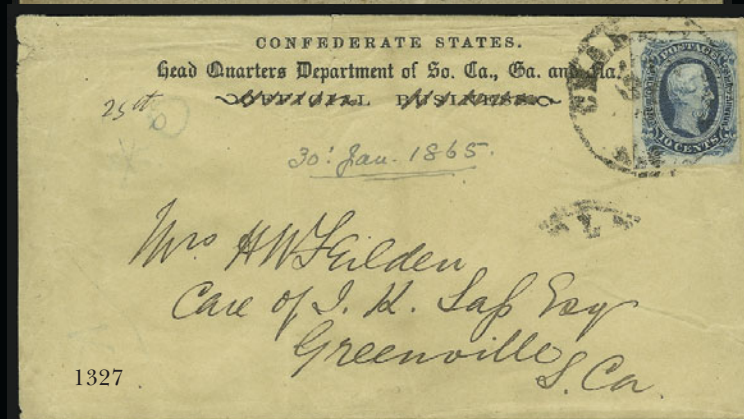 CONFEDERATE STATES.
Head Quarters Department of So. Ca., Ga. and Fla.
OFFICIAL BUSINESS.
25th
30: Jan. 1865.
POSTAGE
10 CENTS
Mrs H W Feilden
Care of J. K. Saſs Esq
Greenville
S. Ca.
1327